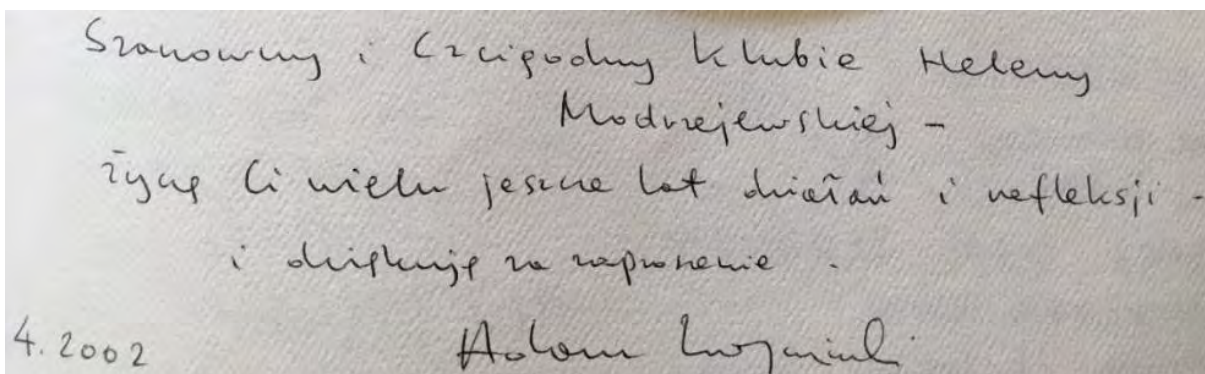 Szanowny i Czcigodny Klubie Heleny
Modrzejewskiej -
życzę Ci wielu jeszcze lat działań i refleksji -
i dziękuję za zaproszenie.
4.2002 Adam